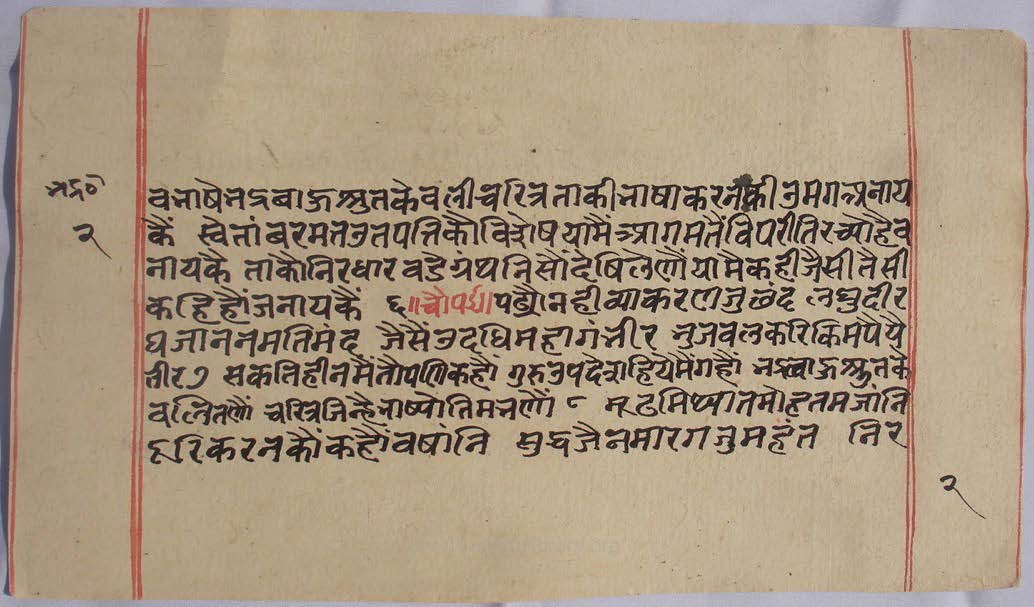 भद्र०
२
व भाषै भद्रबाऊ श्रुतकेवली चरित्र ताकी भाषा करन की उमग अनाय
कैं स्वेतांबरमत उतपत्तिकौ विशेष यामैं आगमतैं विपरीति रच्यौ है व
नायकै ताकौ निरधार वडे ग्रंथनिसौं देषि लेणौं यामै कही जैसी तैसी
कहिहौं जनायकैं ६ ॥चौपई॥ पढ्यौ नही व्याकरण जु छंद लघु दीर
घ जान न मतिमंद जैसैं उदधि महागंभीर भुजबल करि किम पैयै
तीर ७ सकतिहीन मैं तौपणि कहौं गुरु उपदेश हियेमैं गहौं भद्रबाऊ श्रुतके
वलि तणौं चरित्र जिन्है भाष्यो तिम भणौं ८ मूढ मिथ्यात मोह तम जांनि
हरि करनकौं कहौ वषांनि सुद्ध जैनमारग जु महंत निर
२